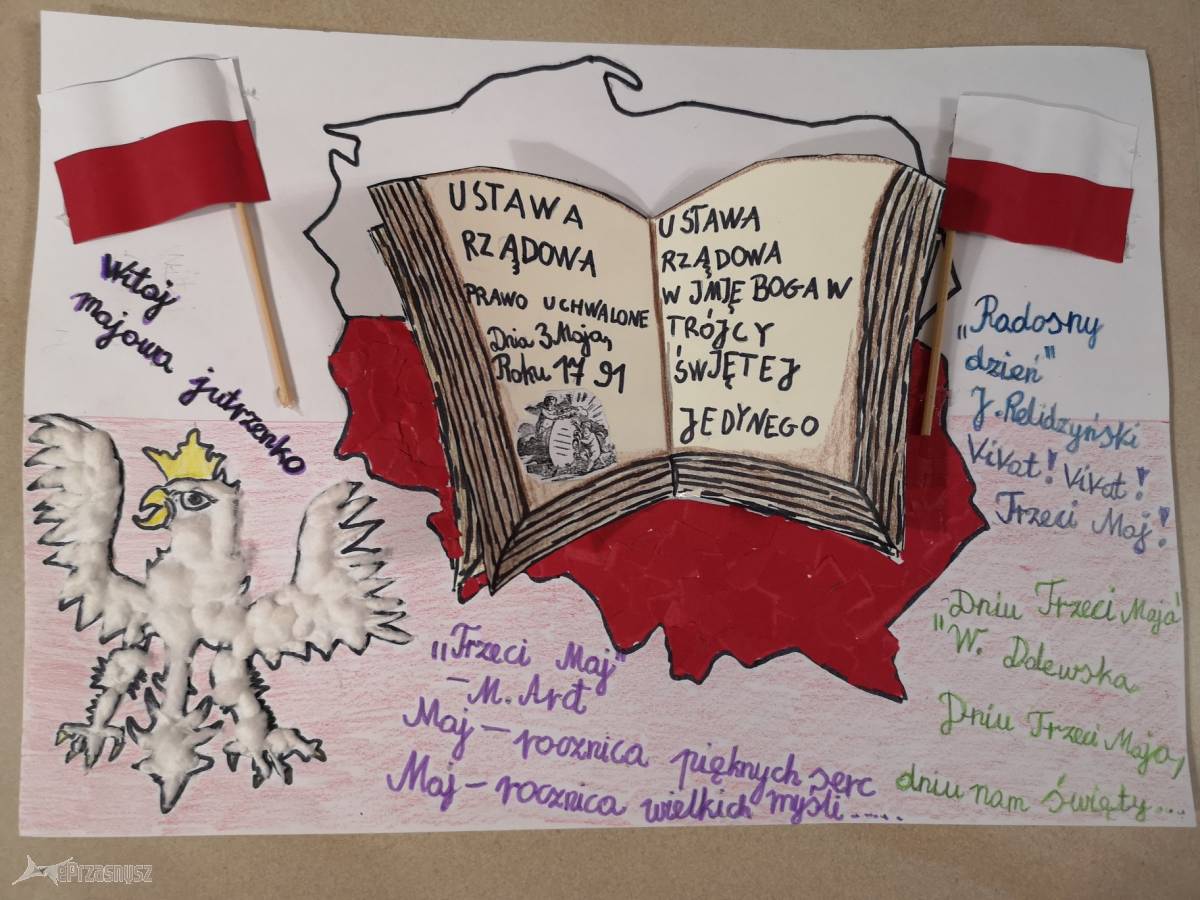 Witaj
majowa jutrzenko
USTAWA
RZĄDOWA
PRAWO UCHWALONE
Dnia 3 Maja,
Roku 1791
USTAWA
RZĄDOWA
W JMJĘ BOGA W
TRÓJCY
ŚWJĘTEJ
JEDYNEGO
„Radosny
dzień"
J. Relidzyński
Vivat! Vivat!
Trzeci Maj!
„Dniu Trzeci Maja"
W. Dolewska
Dniu Trzeci Maja,
dniu nam święty...
„Trzeci Maj"
- M. Arct
Maj - rocznica pięknych serc
Maj - rocznica wielkich myśli.....
ePrzasnysz